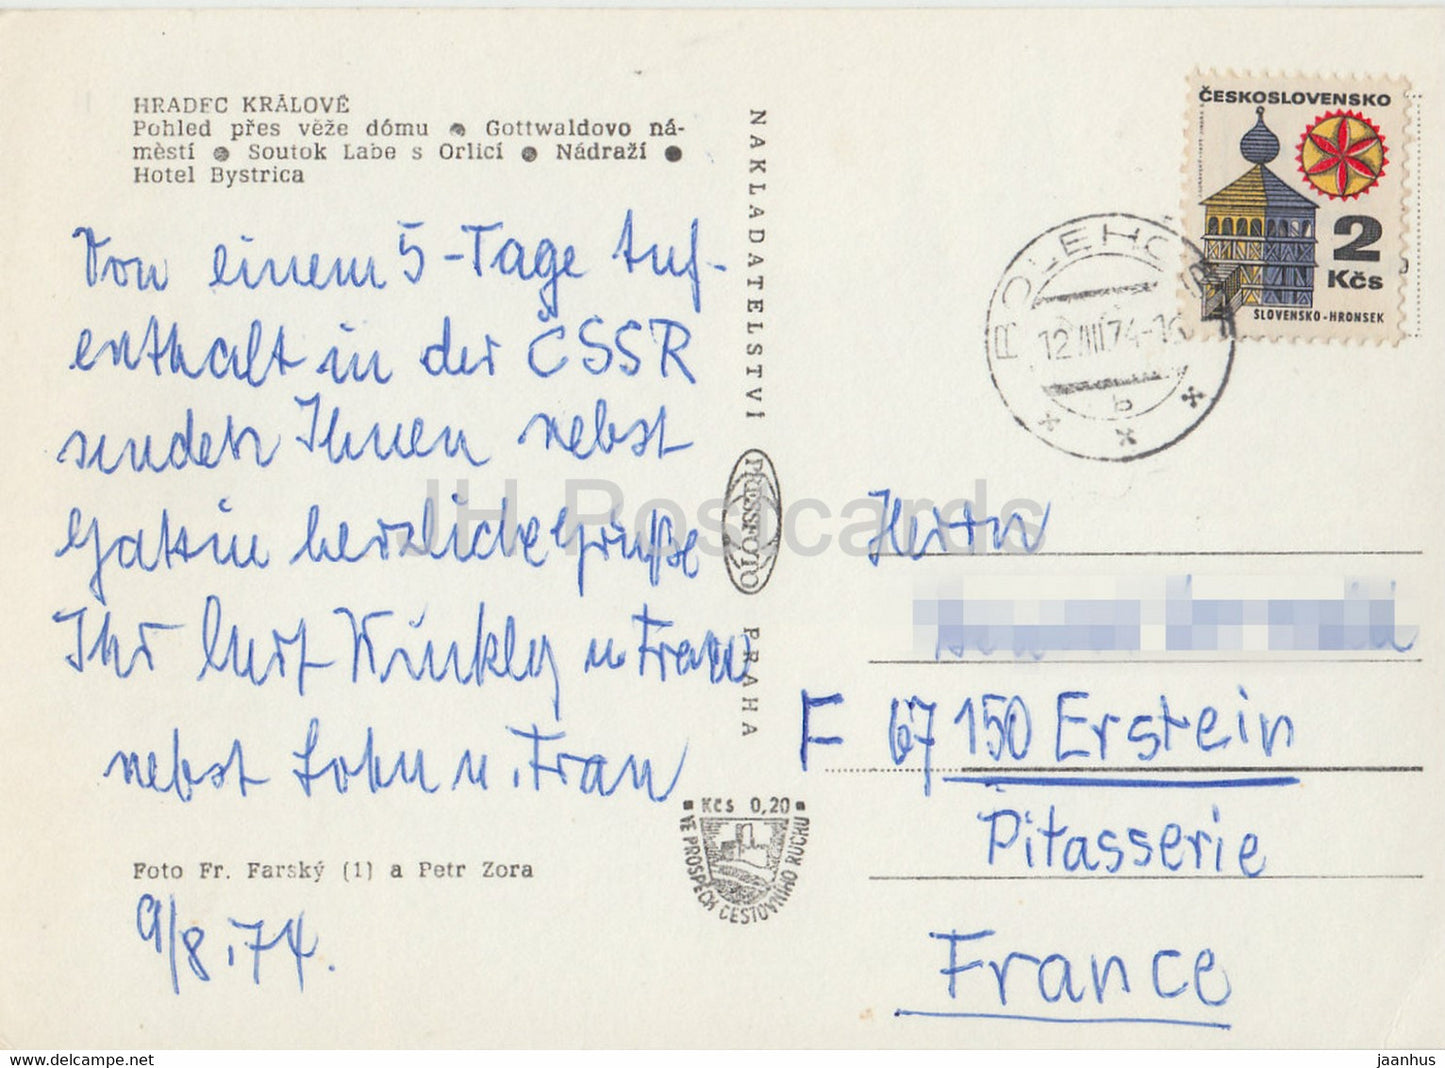 HRADEC KRÁLOVÉ
Pohled přes věže dómu ● Gottwaldovo ná-
městí ● Soutok Labe s Orlicí ● Nádraží ●
Hotel Bystrica
Von einem 5-Tage Auf-
enthalt in der ČSSR
senden Ihnen nebst
Gattin herzliche Grüße
Ihr Kurt Künkly u Frau
nebst Sohn u. Frau
Foto Fr. Farský (1) a Petr Zora
9/8.74.
NAKLADATELSTVÍ
PRESSFOTO
PRAHA
Kčs 0,20
VE PROSPĚCH CESTOVNÍHO RUCHU
ČESKOSLOVENSKO
2
Kčs
SLOVENSKO-HRONSEK
12.VIII.74-16
b
Herrn
F 67150 Erstein
Pitasserie
France
JH Postcards
www.delcampe.net
jaanhius